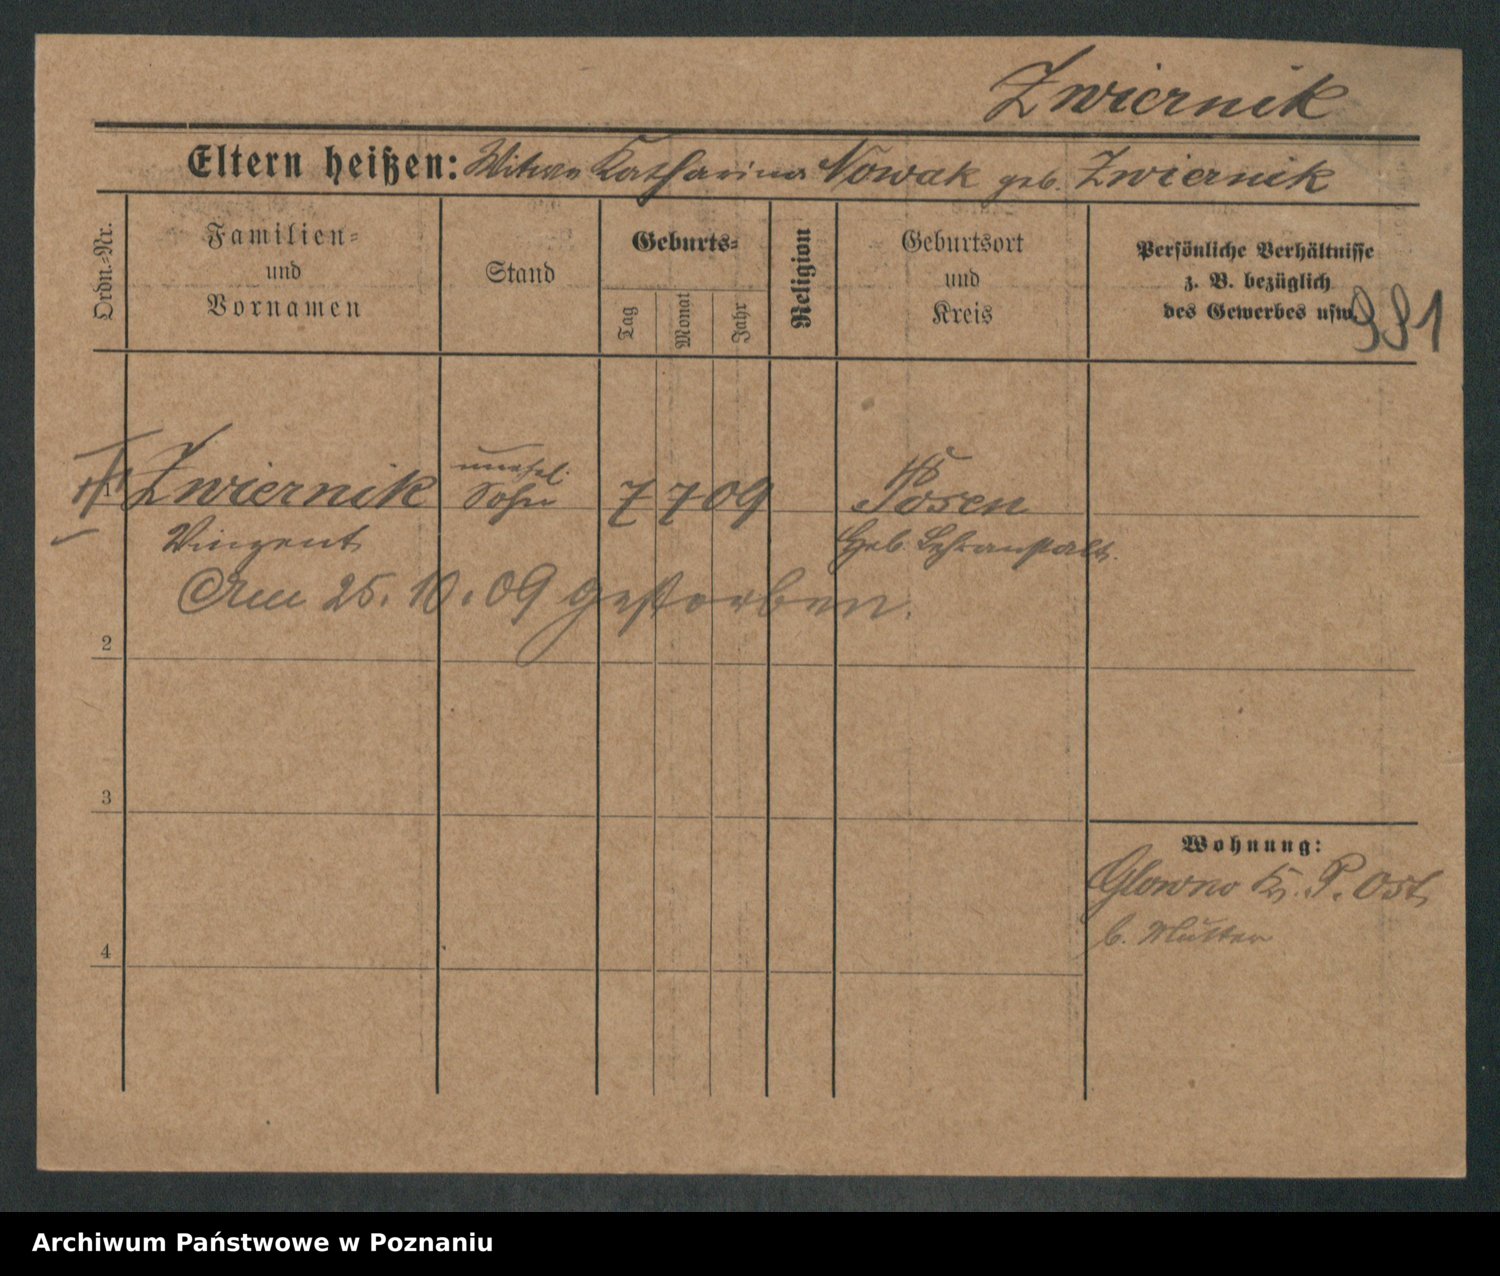 Zwiernik
Eltern heißen: Witwe Katharina Nowak geb. Zwiernik
Ordn.-Nr.
Familien-
und
Vornamen
Stand
Geburts-
Tag
Monat
Jahr
Religion
Geburtsort
und
Kreis
Persönliche Verhältnisse
z. B. bezüglich
des Gewerbes usw.
991
1 Zwiernik unehel. Sohn 7 7 09 Posen
Vinzent Heb. Lehranstalt.
Am 25. 10. 09 gestorben.
2
3
4
Wohnung:
Glowno Kr. P. Ost
b. Mutter
Archiwum Państwowe w Poznaniu